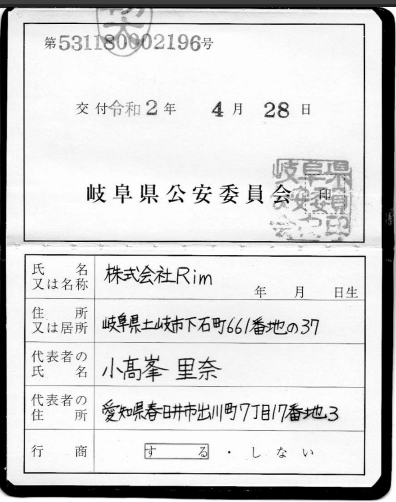 第531180002196号
交付 令和2年 4月 28日
岐阜県公安委員会 印
氏名又は名称 株式会社Rim 年 月 日生
住所又は居所 岐阜県土岐市下石町661番地の37
代表者の氏名 小髙峯 里奈
代表者の住所 愛知県春日井市出川町7丁目17番地3
行商 する・しない